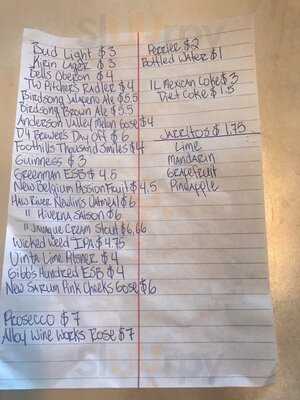 Bud Light $3
Kirin Lager $3
Bells Oberon $4
TW Pitchers Radler $4
Birdsong Jalapeno Ale $5.5
Birdsong Brown Ale $5.5
Anderson Valley Melon Gose $4
D9 Brewer's Day Off $6
Foothills Thousand Smiles $4
Guinness $3
Greenman ESB $4.5
New Belgium Passion Fruit $4.5
Haw River Newlin's Oatmeal $6
" Hiverna Saison $6
" Javaque Cream Stout $6.66
Wicked Weed IPA $4.75
Uinta Lime Pilsner $4
Gibb's Hundred ESB $4
New Sarum Pink Cheeks Gose $6
Prosecco $7
Alloy Wine Works Rose $7
Perrier $2
Bottled Water $1
1L Mexican Coke $3
Diet Coke $1.5
Jarritos $1.75
Lime
Mandarin
Grapefruit
Pineapple